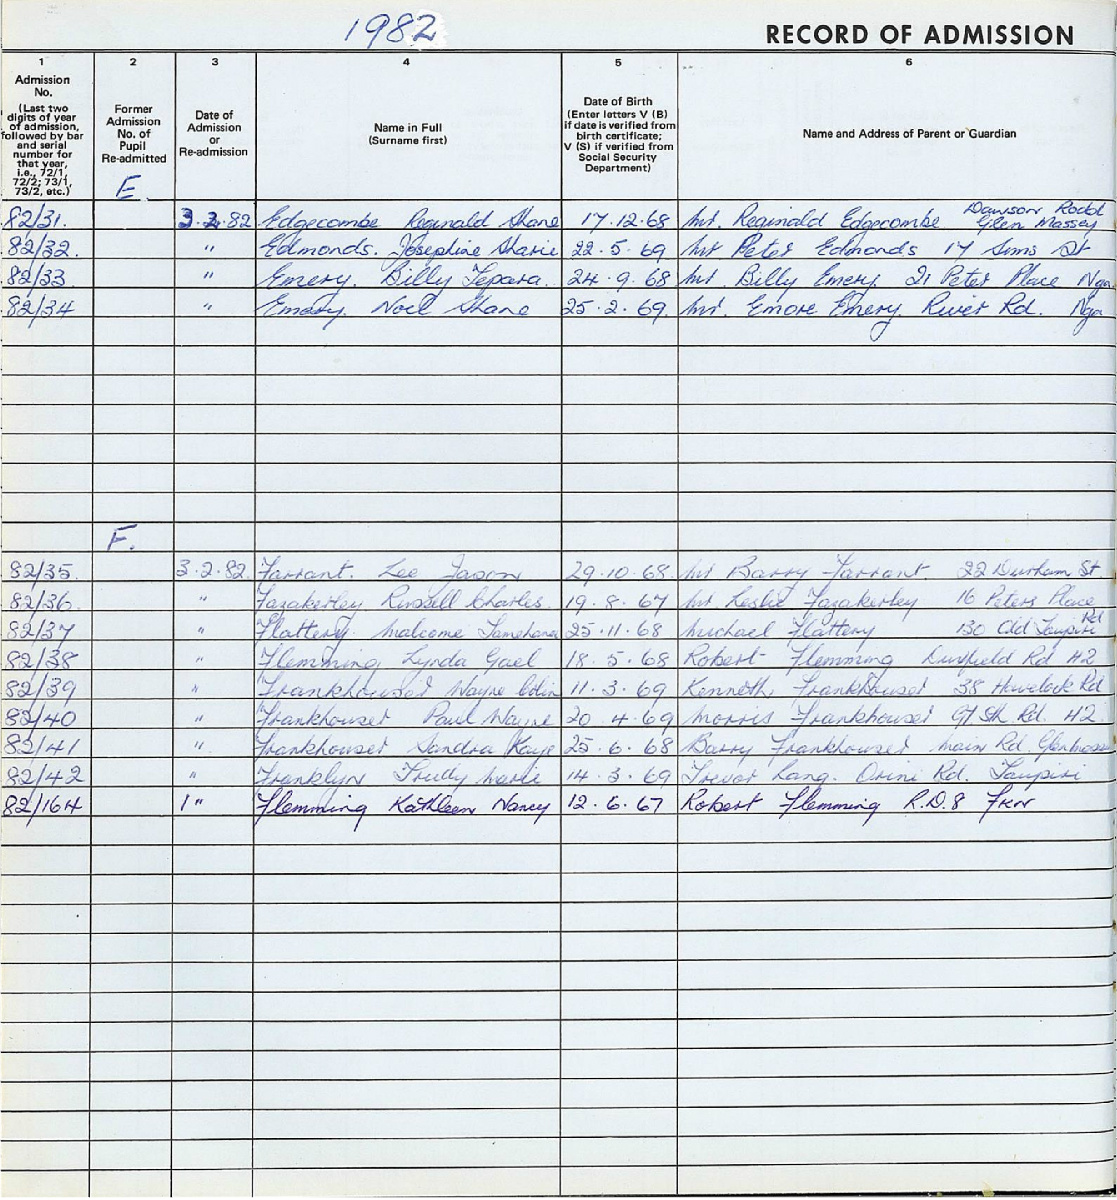 1982
RECORD OF ADMISSION
1 2 3 4 5 6
Admission No. (Last two digits of year of admission, followed by bar and serial number for that year, i.e., 72/1, 72/2; 73/1, 73/2, etc.)
Former Admission No. of Pupil Re-admitted
Date of Admission or Re-admission
Name in Full (Surname first)
Date of Birth (Enter letters V (B) if date is verified from birth certificate; V (S) if verified from Social Security Department)
Name and Address of Parent or Guardian
E
82/31. 3.2.82 Edgecombe Reginald Shane 17.12.68 Mr. Reginald Edgecombe Dawson Road Glen Massey
82/32. " Edmonds. Josephine Sharie 22.5.69 Mr Peter Edmonds 17 Sims St
82/33 " Emery. Billy Tepara. 24.9.68 Mr. Billy Emery. 21 Peter Place Nga
82/34 " Emery. Noel Shane 25.2.69. Mr. Emore Emery. River Rd. Nga
F.
82/35 3.2.82. Farrant. Lee Jason 29.10.68 Mr Barry Farrant. 22 Durham St
82/36 " Fazakerley Russell Charles. 19.8.67 Mr Leslie Fazakerley 16 Peters Place
82/37 " Flattery. Malcome 25.11.68 Michael Flattery 130 Old Taupiri Rd
82/38 " Flemming, Lynda Gael 18.5.68 Robert Flemming Rd H2
82/39 " Frankhouser Wayne Colin 11.3.69 Kenneth, Frankhouser 38 Havelock Rd
82/40 " Frankhouser Paul Wayne 20.4.69 Morris Frankhouser Gt. Sth. Rd. H2.
82/41 " Frankhouser Sandra Kaye 25.6.68 Barry Frankhouser Main Rd. Glenmassey
82/42 " Franklyn Trudy Marie 14.3.69 Trevor Lang. Orini Rd. Taupiri
82/164 1 " Flemming Kathleen Nancy 12.6.67 Robert Flemming R.D.8 Fkn